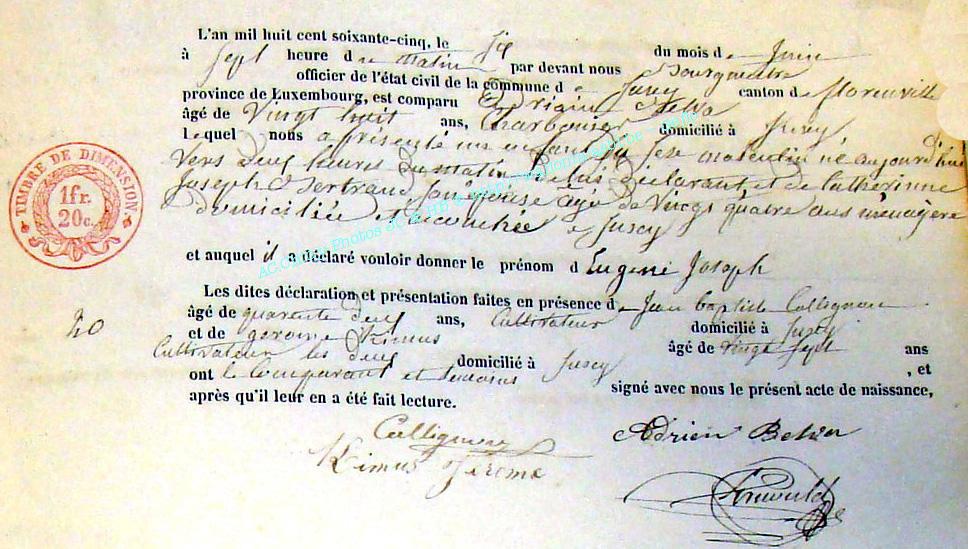 L'an mil huit cent soixante-cinq, le six du mois de Juin
à sept heure du matin par devant nous Bourgmestre
officier de l'état civil de la commune de Jusey canton de florenville
province de Luxembourg, est comparu Adrien
âgé de Vingt huit ans, Charbonier domicilié à Jusey
Lequel nous a présenté un enfant du sexe masculin né aujourd'hui
vers deux heures du matin de lui déclarant et de Catherinne
Joseph Bertrand son épouse agé de vingt quatre ans ménagère
domiciliée et accouchée à Jusey
et auquel il a déclaré vouloir donner le prénom d Eugène Joseph
Les dites déclaration et présentation faites en présence de Jean baptiste Collignon
âgé de quarente deux ans, Cultivateur domicilié à Jusey
et de gerome Kimus âgé de vingt sept ans
Cultivateur les deux domicilié à Jusey , et
ont le comparant et temoins signé avec nous le présent acte de naissance,
après qu'il leur en a été fait lecture.
TIMBRE DE DIMENSION
1 fr.
20 c.
20
Collignon
Adrien Belva
Kimus Jerome